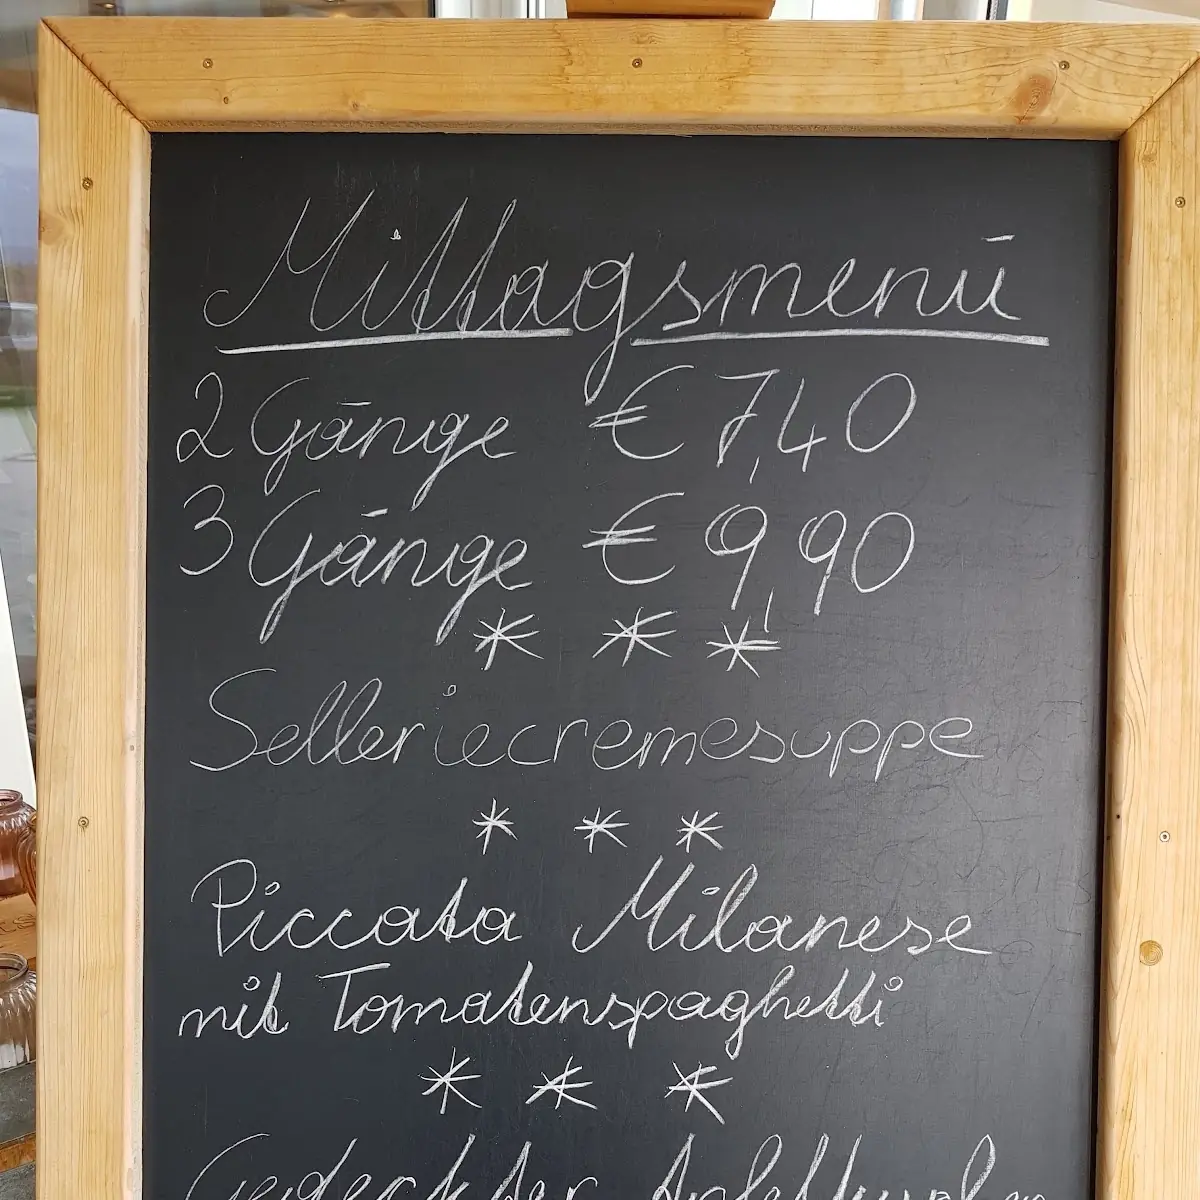 Mittagsmenü
2 Gänge € 7,40
3 Gänge € 9,90
* * *
Selleriecremesuppe
* * *
Piccata Milanese
mit Tomatenspaghetti
* * *
Gedeckter Apfelkuchen